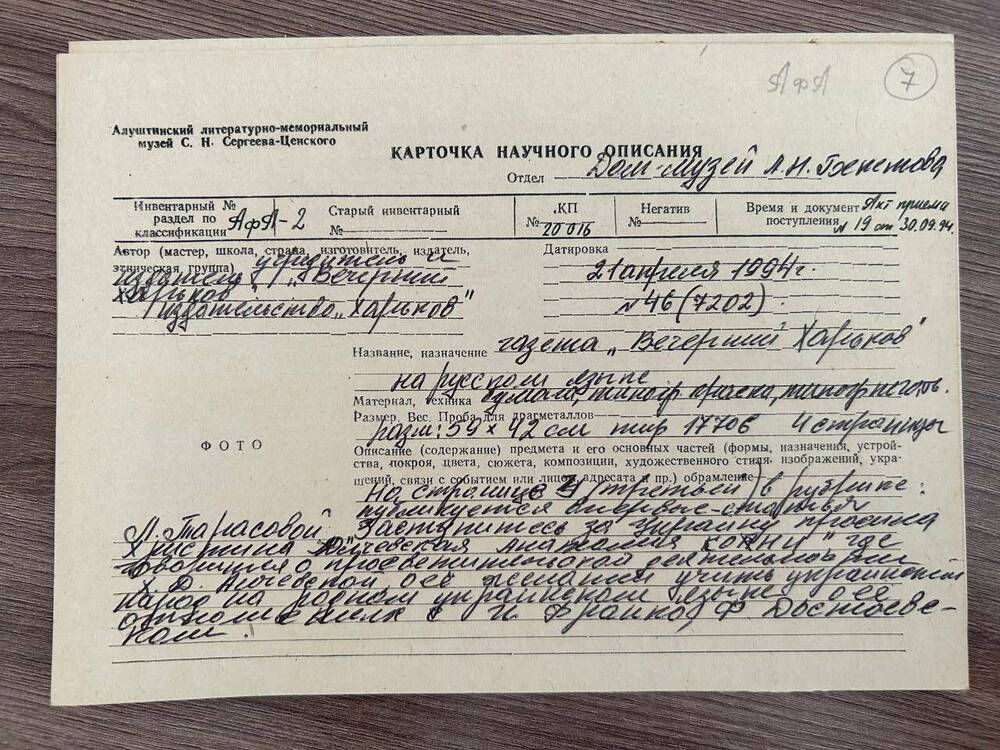 АфА
7
Алуштинский литературно-мемориальный
музей С. Н. Сергеева-Ценского
КАРТОЧКА НАУЧНОГО ОПИСАНИЯ
Отдел Дом-музей А.Н. Бекетова
Инвентарный №
раздел по
классификации АфА-2
Старый инвентарный
№
КП
№ 20016
Негатив
№
Время и документ Акт приема
поступления № 19 от 30.09.94.
Автор (мастер, школа, страна, изготовитель, издатель,
этническая группа) учредитель и
издатель "Вечерний
Харьков
издательство "Харьков"
Датировка
21 апреля 1994 г.
№ 46 (7202)
Название, назначение газета "Вечерний Харьков"
на русском языке
Материал, техника бумага, типогр. краска, типогр.
Размер. Вес. Проба для драгметаллов
разм: 59 x 42 см тир 17706 4 страницы
ФОТО
Описание (содержание) предмета и его основных частей (формы, назначения, устрой-
ства, покроя, цвета, сюжета, композиции, художественного стиля изображений, укра-
шений, связи с событием или лицом, адресата и пр.) обрамление
На странице 3 (третьей) в рубрике:
публикуется впервые - статья
Л. Тарасовой. Заступитесь за Украину просила
Христина Алчевская где
говорится о просветительской деятельности
Х. Д. Алчевской, о её желании учить украинский
народ на родном украинском языке, о ее
с И. Франко, Ф. Достоевс-
ким.